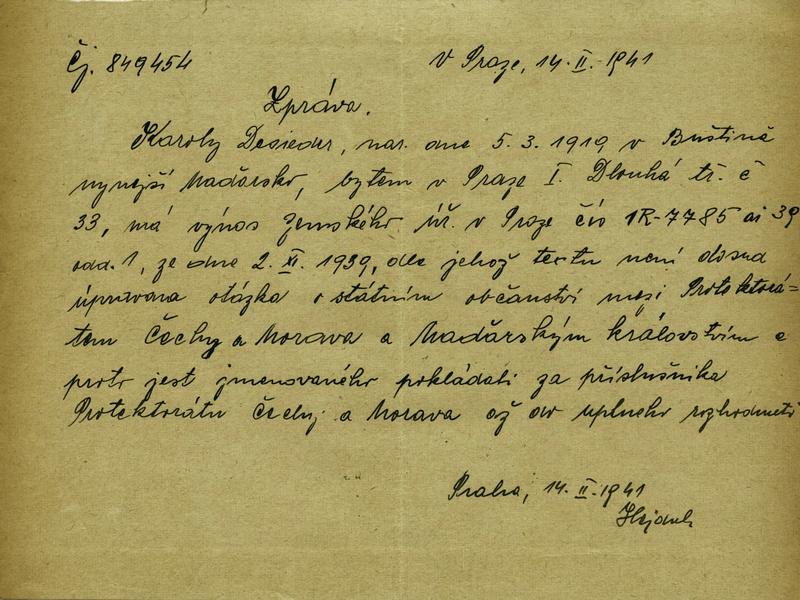 Čj. 849454
V Praze, 14. II. 1941
Zpráva.
Karoly Desider, nar. dne 5. 3. 1919 v Buštině
nynejší Maďarsko, bytem v Praze I. Dlouhá tř. č
33, má výnos Zemského úř. v Praze čís 1R-7785 ai 39
odd. 1, ze dne 2. XI. 1939, dle jehož textu není dosud
úpravena otázka o státním občanství mezi Protektorá=
tem Čechy a Morava a Maďarským královstvím a
proto jest jmenovaného pokládati za příslušníka
Protektorátu Čechy a Morava až do uplneho rozhodnutí
Praha, 14. II. 1941